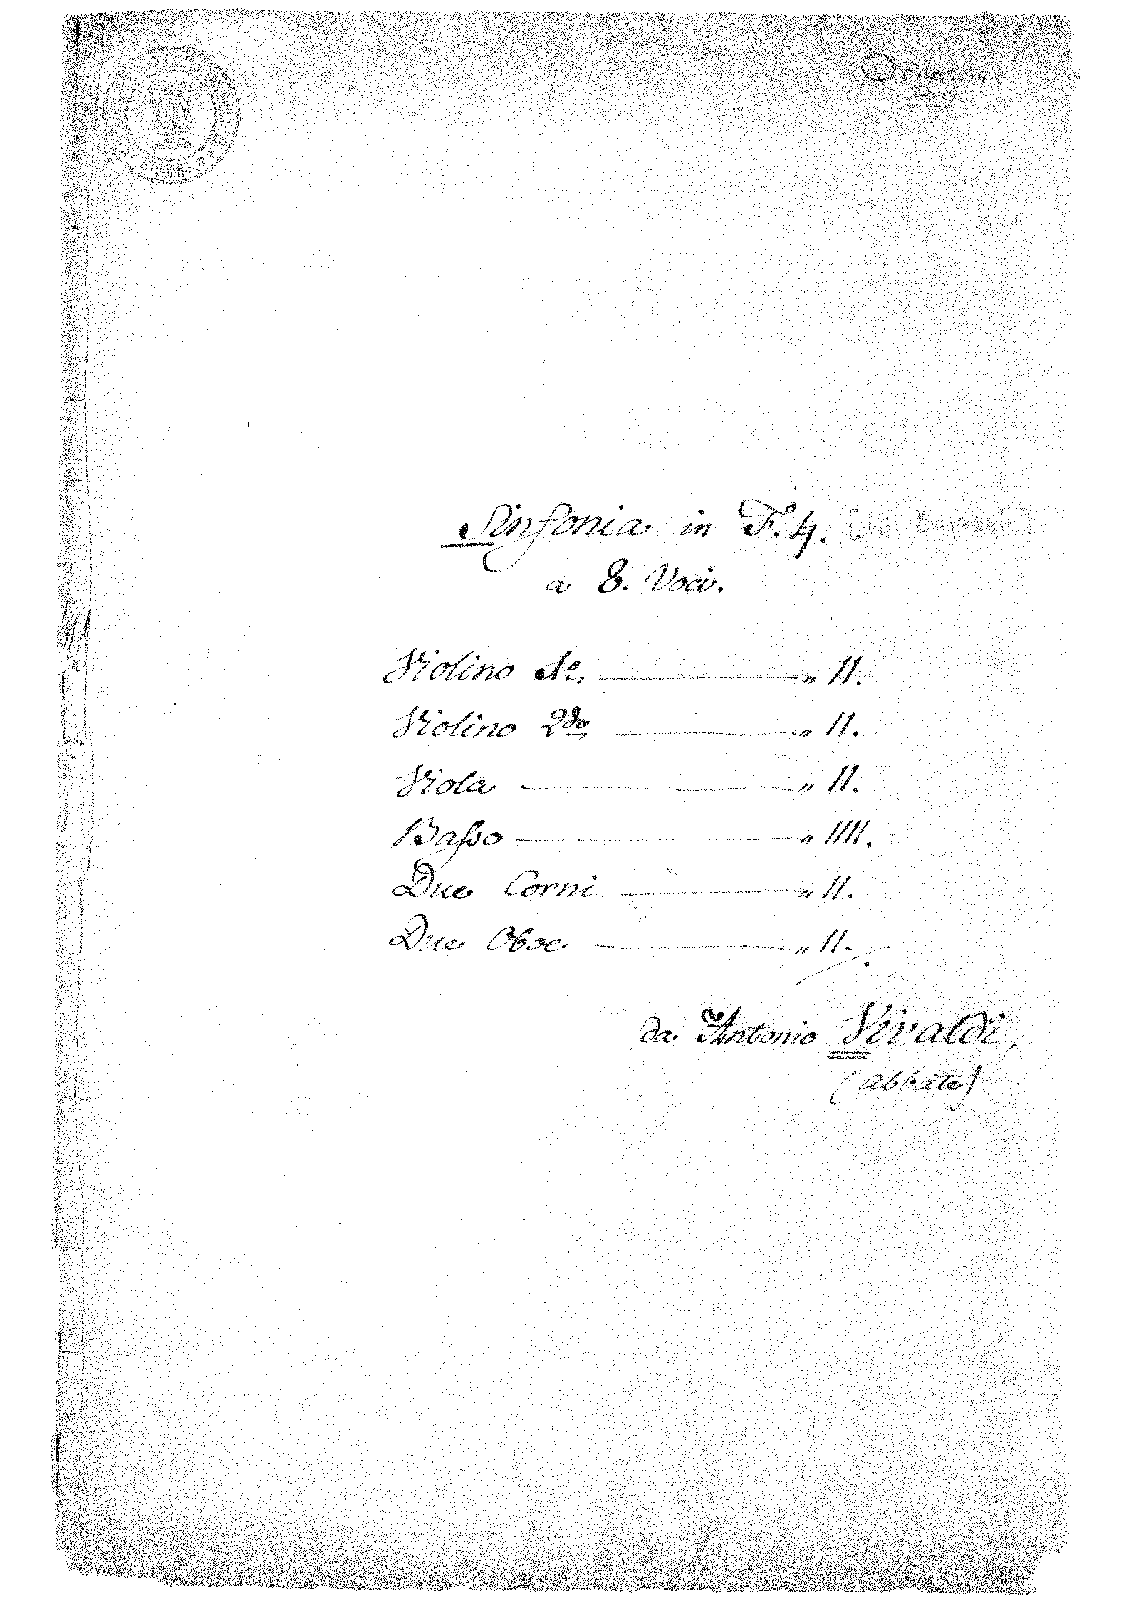 Sinfonia in F. ♮.
a 8. Voci.
Violino 1o. „ II.
Violino 2do „ II.
Viola „ II.
Baſso „ IIII.
Due Corni „ II.
Due Oboe. „ II.
da Antonio Vivaldi,
(abbate)